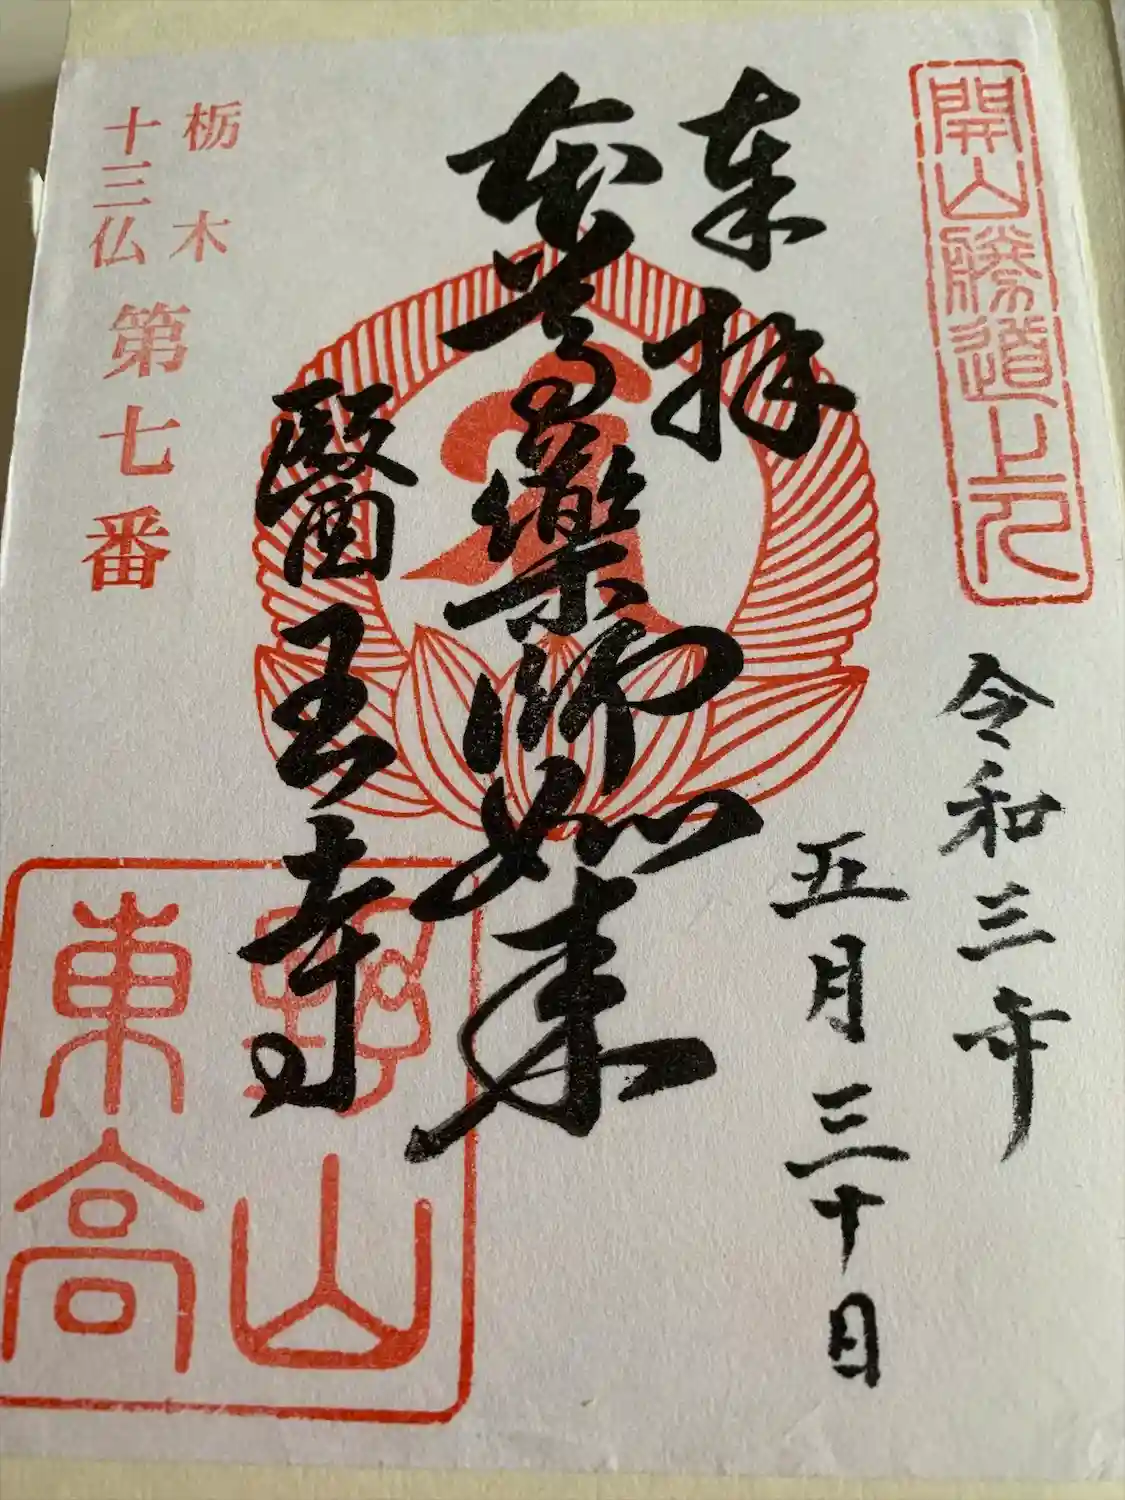 開山勝道上人
令和三年
五月三十日
奉拝
本尊藥師如来
醫王寺
栃木
十三仏
第七番
東高
野山